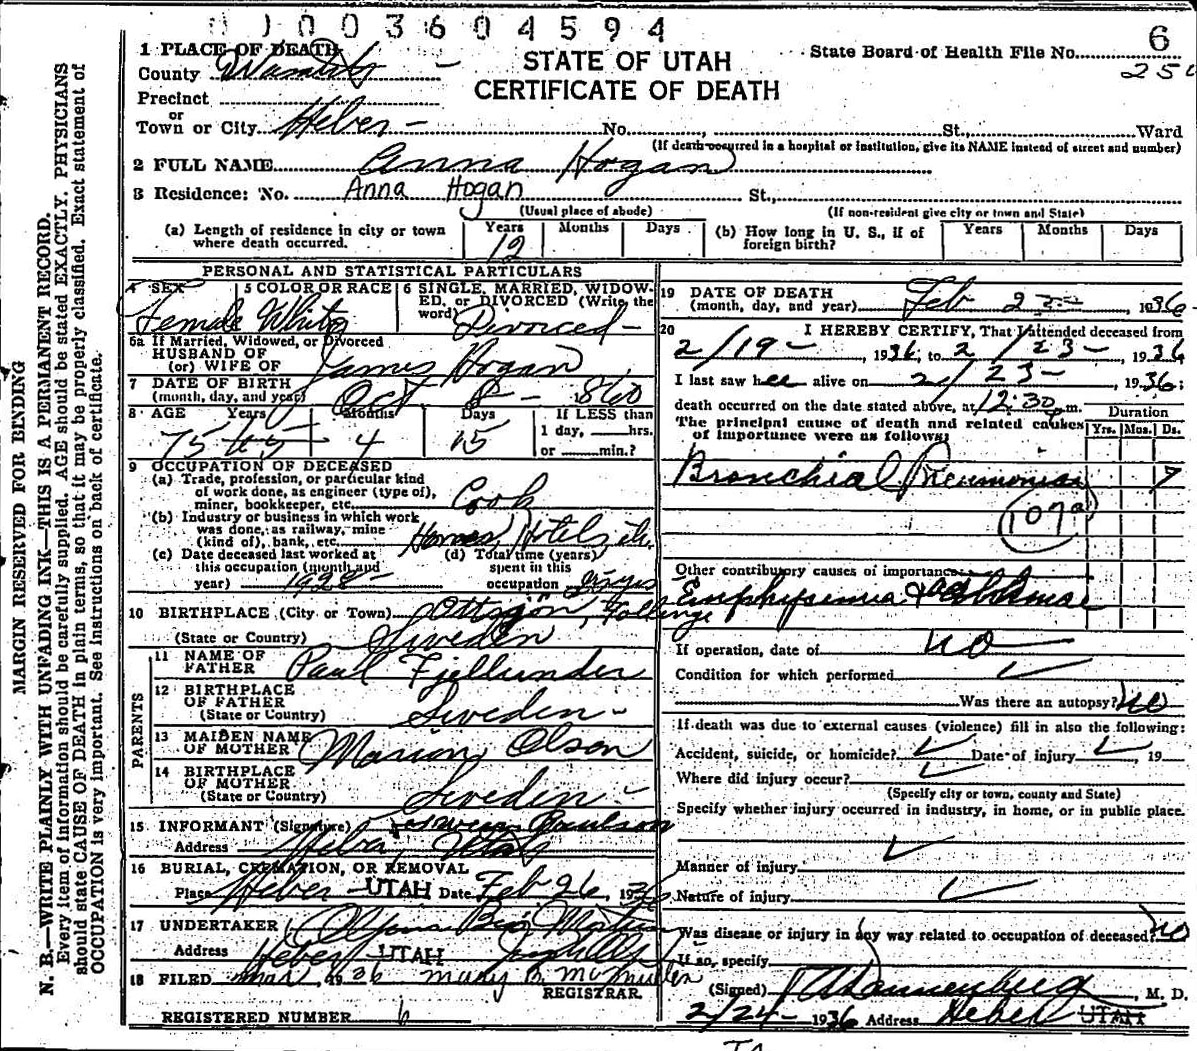 003604594
1 PLACE OF DEATH
County Wasatch
STATE OF UTAH
CERTIFICATE OF DEATH
State Board of Health File No. 6
Precinct
or
Town or City Heber No. , St., Ward
(If death occurred in a hospital or institution, give its NAME instead of street and number)
2 FULL NAME Anna Hogan
3 Residence: No. Anna Hogan St.,
(Usual place of abode) (If non-resident give city or town and State)
(a) Length of residence in city or town where death occurred. Years 12 Months Days
(b) How long in U. S., if of foreign birth? Years Months Days
PERSONAL AND STATISTICAL PARTICULARS
4 SEX Female
5 COLOR OR RACE White
6 SINGLE, MARRIED, WIDOWED, or DIVORCED (Write the word) Divorced
6a If Married, Widowed, or Divorced
HUSBAND OF
(or) WIFE OF James Hogan
7 DATE OF BIRTH
(month, day, and year) Oct 8 - 860
8 AGE Years Months Days If LESS than
75 4 15 1 day, hrs.
or min.?
9 OCCUPATION OF DECEASED
(a) Trade, profession, or particular kind
of work done, as engineer (type of),
miner, bookkeeper, etc. Cook
(b) Industry or business in which work
was done, as railway, mine
(kind of), bank, etc. Homes Hotels etc.
(c) Date deceased last worked at
this occupation (month and
year) 1928
(d) Total time (years)
spent in this
occupation
10 BIRTHPLACE (City or Town)
(State or Country) Sweden
PARENTS
11 NAME OF
FATHER Paul Fjellunder
12 BIRTHPLACE
OF FATHER
(State or Country) Sweden
13 MAIDEN NAME
OF MOTHER Marion Olson
14 BIRTHPLACE
OF MOTHER
(State or Country) Sweden
15 INFORMANT (Signature) Paulson
Address Heber, Utah
16 BURIAL, CREMATION, OR REMOVAL
Place Heber - UTAH Date Feb 26, 1936
17 UNDERTAKER
Address Heber UTAH
18 FILED Mar 1936 Mary B. McMullin
REGISTRAR.
REGISTERED NUMBER 6
19 DATE OF DEATH
(month, day, and year) Feb 23 1936
20 I HEREBY CERTIFY, That I attended deceased from
2/19 - , 1936, to 2/23 - , 1936
I last saw her alive on 2/23 - , 1936;
death occurred on the date stated above, at 12:30 p m.
The principal cause of death and related causes
of importance were as follows: Duration
Yrs. Mos. Ds.
Bronchial Pneumonia 7
107a
Other contributory causes of importance:
Emphysemia & asthma
If operation, date of no
Condition for which performed ✓
Was there an autopsy? no
If death was due to external causes (violence) fill in also the following:
Accident, suicide, or homicide? ✓ Date of injury ✓, 19
Where did injury occur? ✓
(Specify city or town, county and State)
Specify whether injury occurred in industry, in home, or in public place.
✓
Manner of injury
Nature of injury ✓
Was disease or injury in any way related to occupation of deceased? no
If so, specify
(Signed) Dannenberg, M. D.
2/24 - 1936 Address Heber UTAH
MARGIN RESERVED FOR BENDING
N. B.—WRITE PLAINLY WITH UNFADING INK—THIS IS A PERMANENT RECORD.
Every item of information should be carefully supplied. AGE should be stated EXACTLY. PHYSICIANS
should state CAUSE OF DEATH in plain terms, so that it may be properly classified. Exact statement of
OCCUPATION is very important. See instructions on back of certificate.